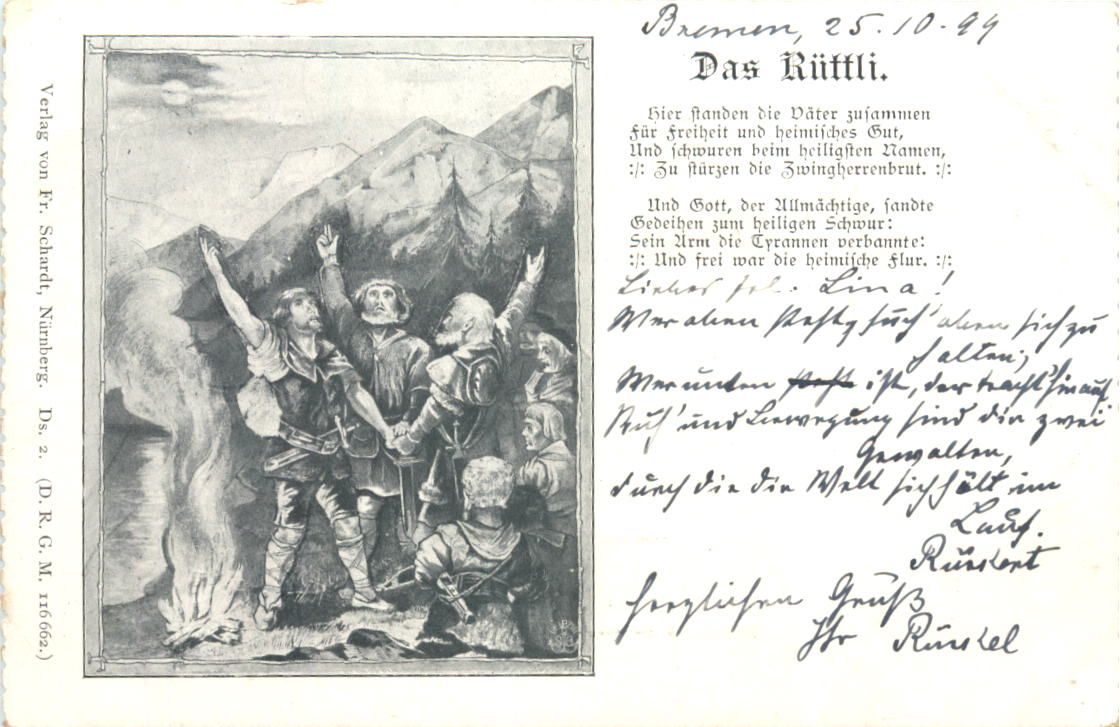 Bremen, 25.10.99
Das Rüttli.
Hier standen die Väter zusammen
Für Freiheit und heimisches Gut,
Und schwuren beim heiligsten Namen,
:/: Zu stürzen die Zwingherrenbrut. :/:
Und Gott, der Allmächtige, sandte
Gedeihen zum heiligen Schwur:
Sein Arm die Tyrannen verbannte:
:/: Und frei war die heimische Flur. :/:
Liebes Frl. Lina!
Wer oben steht, such' oben sich zu
halten;
Wer unten ist, der tracht' hinauf.
Ruh' und Bewegung sind die zwei
Gewalten,
durch die die Welt sich hält im
Lauf.
Rückert
Herzlichen Gruß
Ihr Runkel
Verlag von Fr. Schardt, Nürnberg. Ds. 2. (D. R. G. M. 116662.)